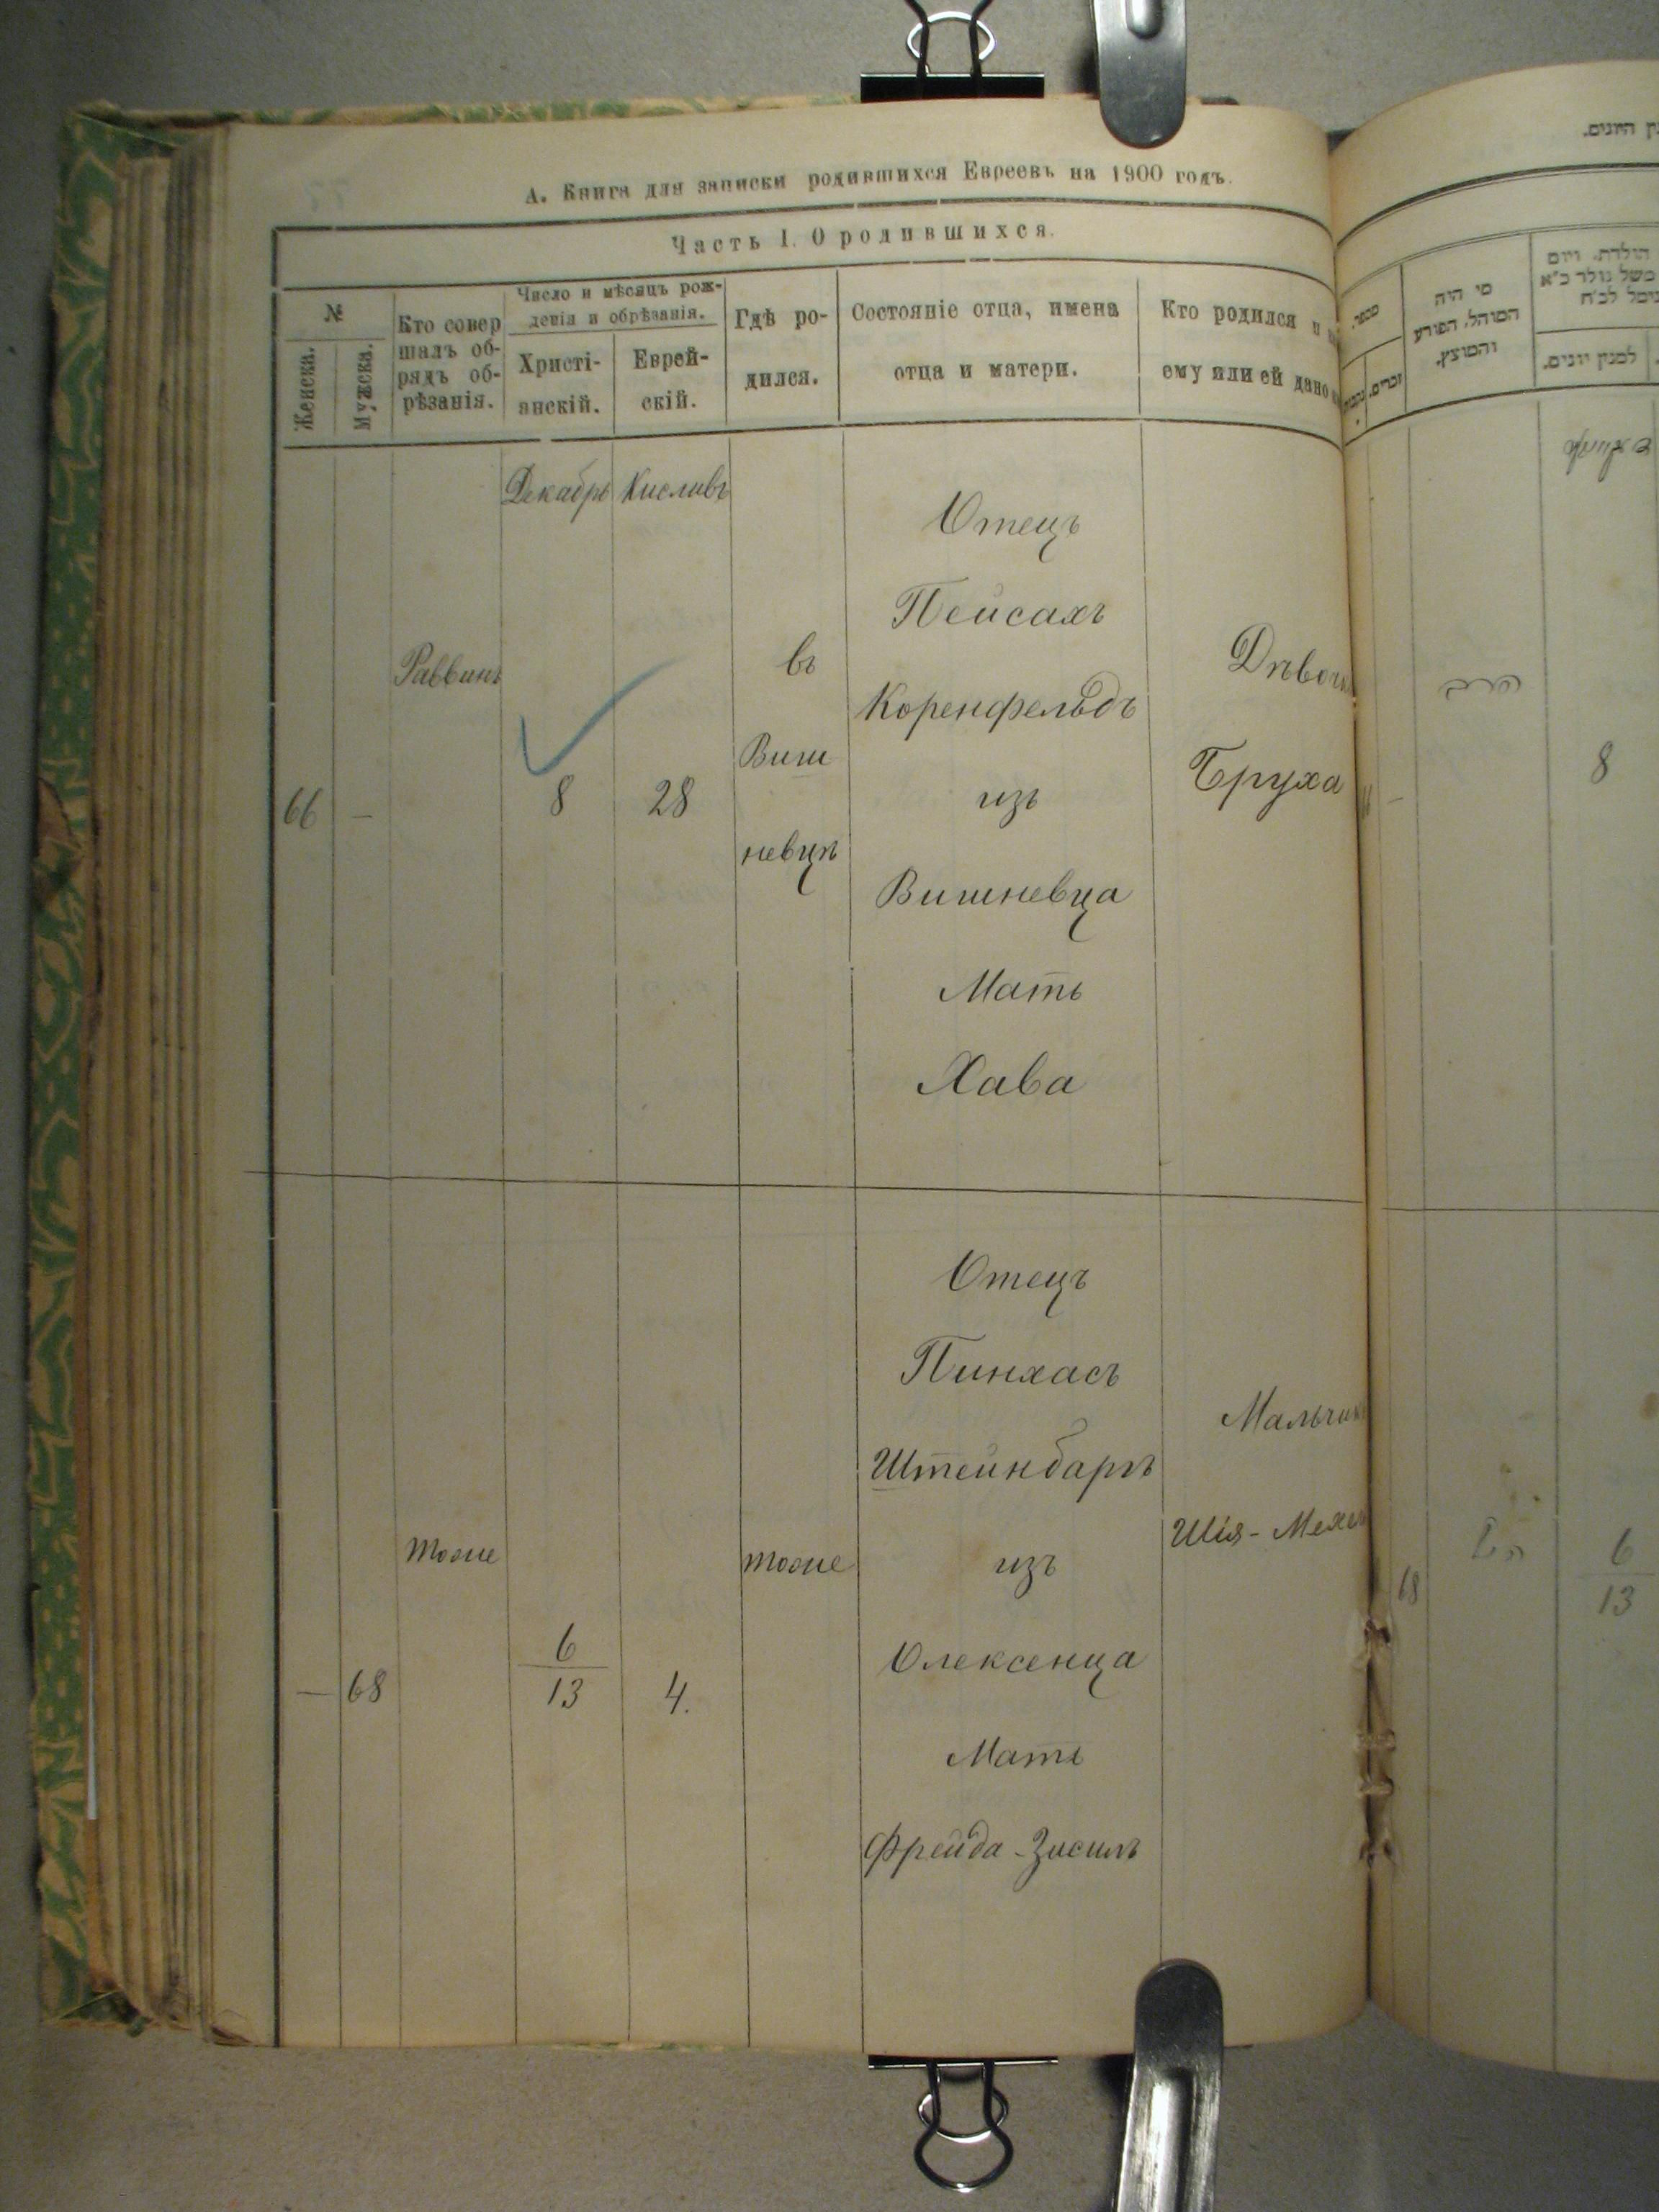 А. Книга для записки родившихся Евреевъ на 1900 годъ.
Часть I. О родившихся.
№
Женска.
Мужска.
Кто совер
шалъ об-
рядъ об-
рѣзанія.
Число и мѣсяцъ рож-
денія и обрѣзанія.
Христі-
анскій.
Еврей-
скій.
Гдѣ ро-
дился.
Состояніе отца, имена
отца и матери.
Кто родился и
ему или ей дано
66
—
Раввинъ
Декабрь
8
Кисливъ
28
въ
Виш
невцѣ
Отецъ
Пейсахъ
Коренфельдъ
изъ
Вишневца
Мать
Хава
Дѣвочк
Бруха
—
68
тоже
6
13
4.
тоже
Отецъ
Пинхасъ
Штейнбаргъ
изъ
Олексенца
Мать
Фрейда-Зисиль
Мальчик
Шія-Мехел
מי היה
המוהל, הפורע
והמוצץ.
מספר.
זכרים.
הולדת. ויום
למנין יונים.
הרב
8
68
6
13